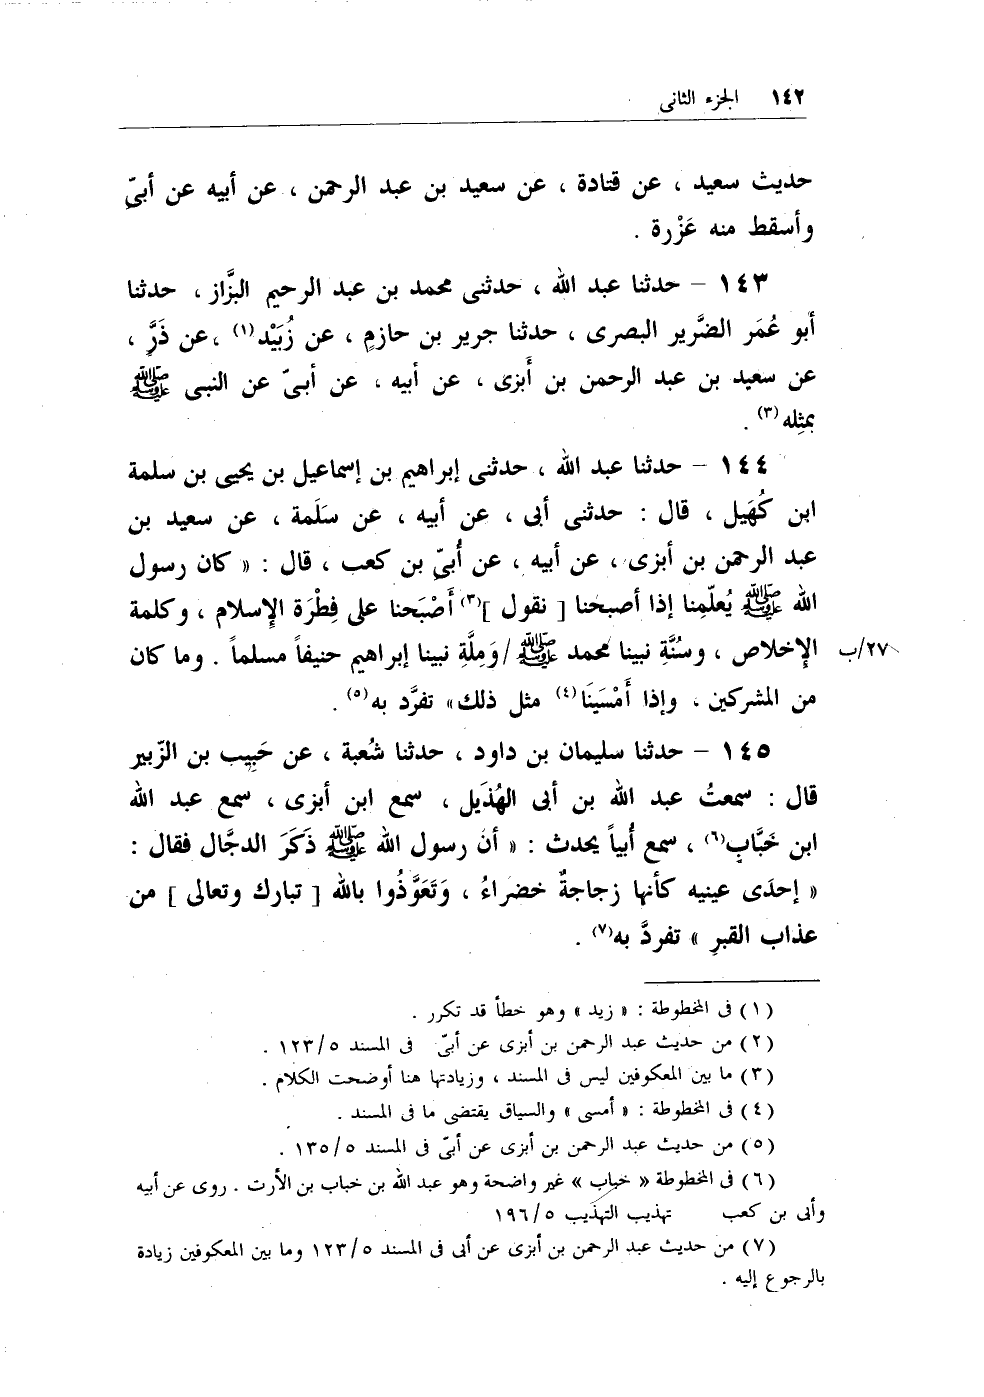 ١٤٢ الجزء الثانى
حديث سعيد ، عن قتادة ، عن سعيد بن عبد الرحمن ، عن أبيه عن أبىّ
وأسقط منه عَزْرة .
١٤٣ – حدثنا عبد الله ، حدثنى محمد بن عبد الرحيم البزَّاز ، حدثنا
أبو عُمَر الضَّرير البصرى ، حدثنا جرير بن حازمٍ ، عن زُبَيْد(١) ، عن ذَرٍّ ،
عن سعيد بن عبد الرحمن بن أَبزى ، عن أبيه ، عن أبىّ عن النبى ﷺ
بمثِله(٣) .
١٤٤ – حدثنا عبد الله ، حدثنى إبراهيم بن إسماعيل بن يحيى بن سلمة
ابن كُهَيل ، قال : حدثنى أبى ، عن أبيه ، عن سَلَمة ، عن سعيد بن
عبد الرحمن بن أبزى ، عن أبيه ، عن أُبىّ بن كعب ، قال : « كان رسول
الله ﷺ يُعلّمِنا إذا أصبحنا [ نقول ](٣) أَصْبَحنا على فِطْرَة الإِسلام ، وكلمة
الإِخلاص ، وسُنَّةِ نبينا محمد ﷺ /وَمِلَّةِ نبينا إبراهيم حنيفاً مسلماً . وما كان ٢٧/ب
من المشركين ، وإذا أَمْسَينَا(٤) مثل ذلك» تفرَّد به(٥) .
١٤٥ – حدثنا سليمان بن داود ، حدثنا شُعبة ، عن حَبِيب بن الزّبير
قال : سمعتُ عبد الله بن أبى الهُذَيل ، سمع ابن أبزى ، سمع عبد الله
ابن خَبَّابٍ(٦) ، سمع أُبياً يحدث : « أن رسول الله ﷺ ذَكَرَ الدجَّال فقال :
« إحدَى عينيه كأنها زجاجةٌ خضراءُ ، وَتَعَوَّذُوا بالله [ تبارك وتعالى ] من
عذاب القبرِ » تفردَّ به(٧) .
(١) فى المخطوطة : « زيد» وهو خطأ قد تكرر .
(٢) من حديث عبد الرحمن بن أبزى عن أبىّ فى المسند ١٢٣/٥ .
(٣) ما بين المعكوفين ليس فى المسند ، وزيادتها هنا أوضحت الكلام .
(٤) فى المخطوطة : « أمسى» والسياق يقتضى ما فى المسند .
(٥) من حديث عبد الرحمن بن أبزى عن أبىّ فى المسند ١٣٥/٥ .
(٦) فى المخطوطة « خباب » غير واضحة وهو عبد الله بن خباب بن الأرت . روى عن أبيه
وأبى بن كعب تهذيب التهذيب ١٩٦/٥
(٧) من حديث عبد الرحمن بن أبزى عن أبى فى المسند ١٢٣/٥ وما بين المعكوفين زيادة
بالرجوع إليه .